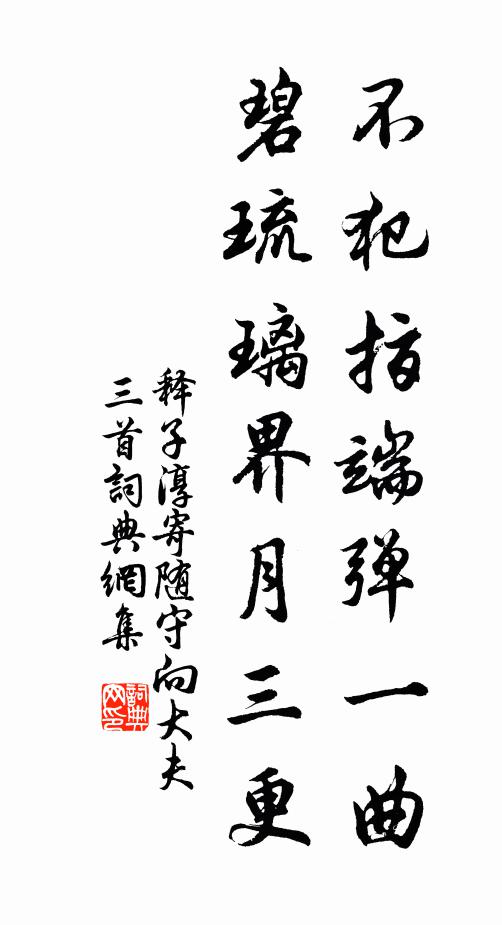 不犯指端弹一曲
碧琉璃界月三更
释子淳寄随守向大夫
三首詞典網集
詞典
网印